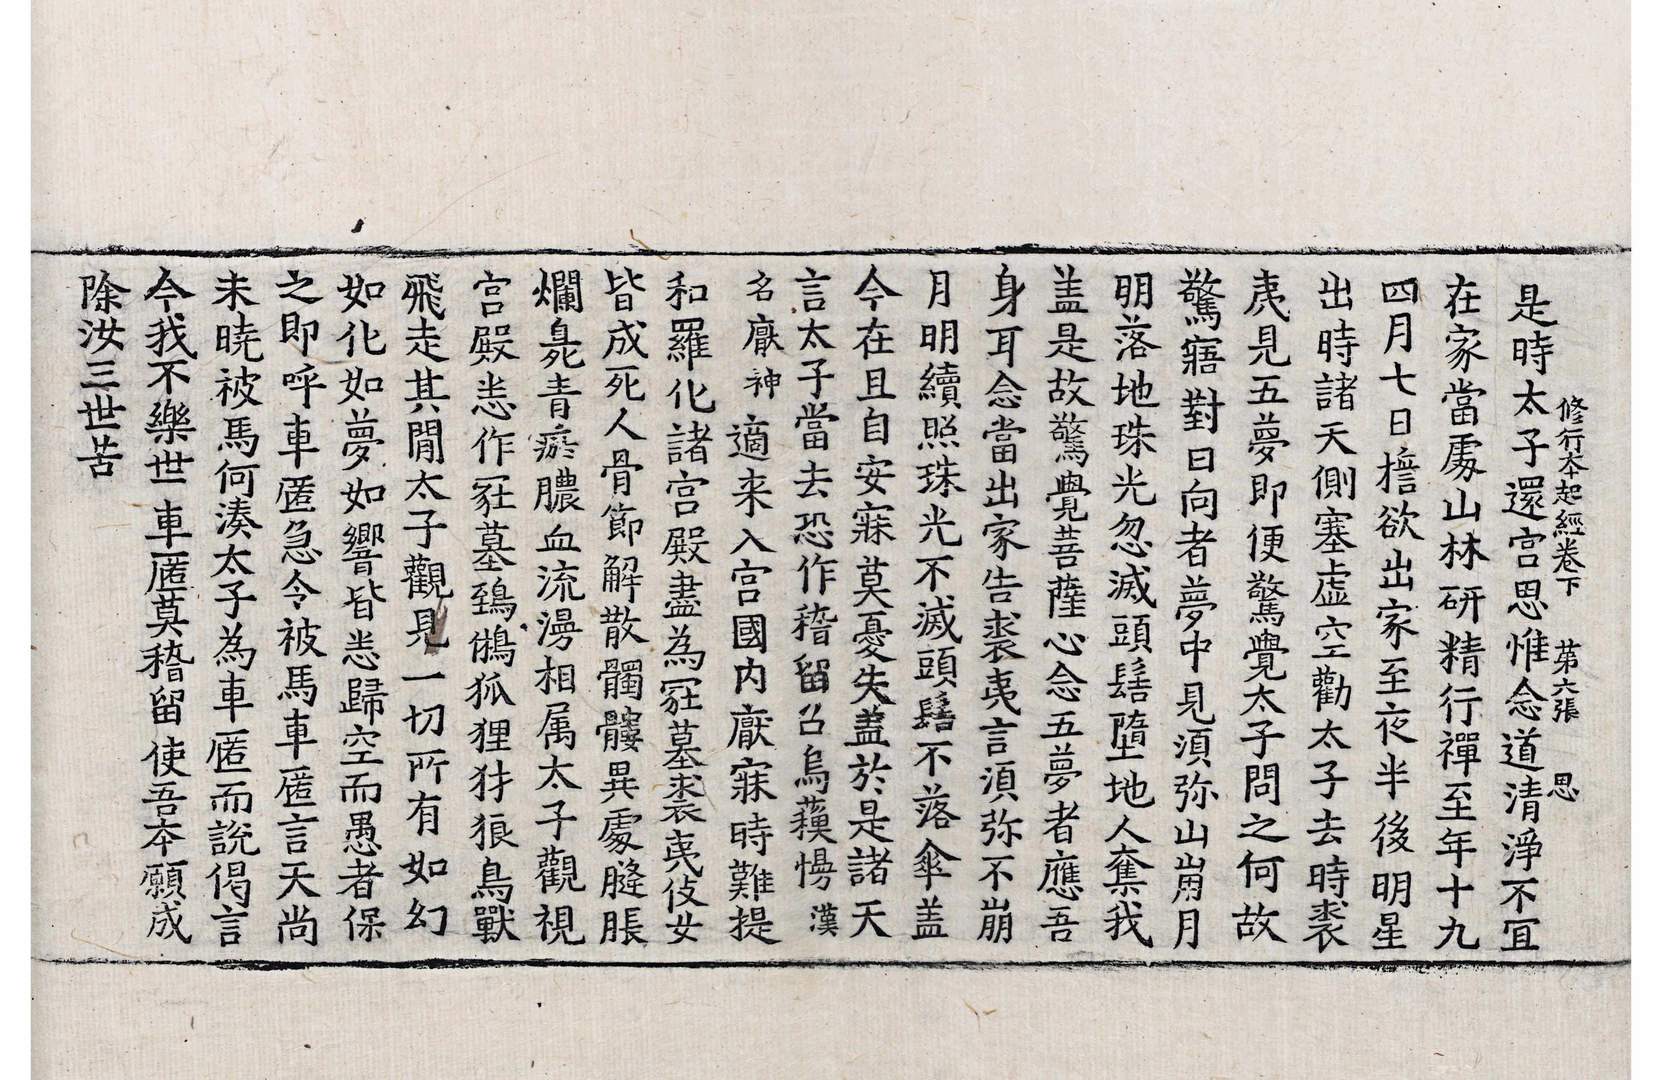 修行本起經卷下　第六張　思
是時太子還宮思惟念道清淨不宜
在家當處山林研精行禪至年十九
四月七日㨫欲出家至夜半後明星
出時諸天側塞虛空勸太子去時裘
夷見五夢即便驚覺太子問之何故
驚寤對曰向者夢中見須弥山崩月
明落地珠光忽滅頭髻墮地人奪我
盖是故驚覺菩薩心念五夢者應吾
身耳念當出家告裘夷言須弥不崩
月明續照珠光不滅頭髻不落傘盖
今在且自安寐莫憂失盖於是諸天
言太子當去恐作稽留召烏蘓慢漢
名厭神適来入宮國內厭寐時難提
和羅化諸宮殿盡為冢墓裘夷伎女
皆成死人骨節解散髑髏異處膖脹
爛臰青瘀膿血流漫相属太子觀視
宮殿悉作冢墓鵄鵂狐狸犲狼鳥獸
飛走其閒太子觀見一切所有如幻
如化如夢如響皆悉歸空而愚者保
之即呼車匿急令被馬車匿言天尚
未曉被馬何湊太子為車匿而說偈言
今我不樂世　車匿莫稽留　使吾本願成
除汝三世苦